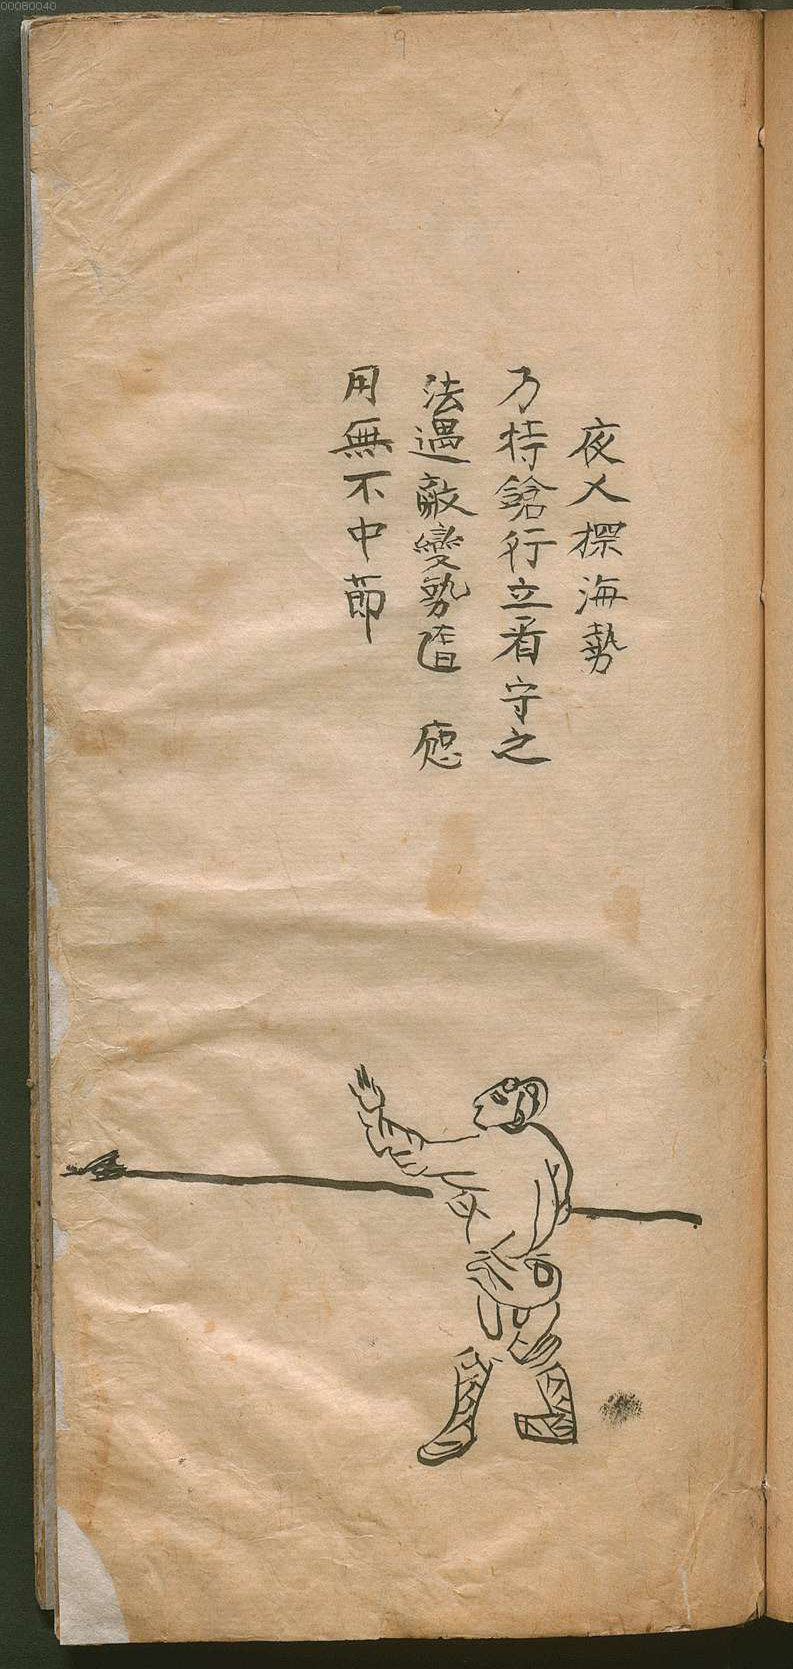 00080040
9
夜乂探海勢
乃持鎗行立看守之
法遇敵變勢隨 應
用無不中節